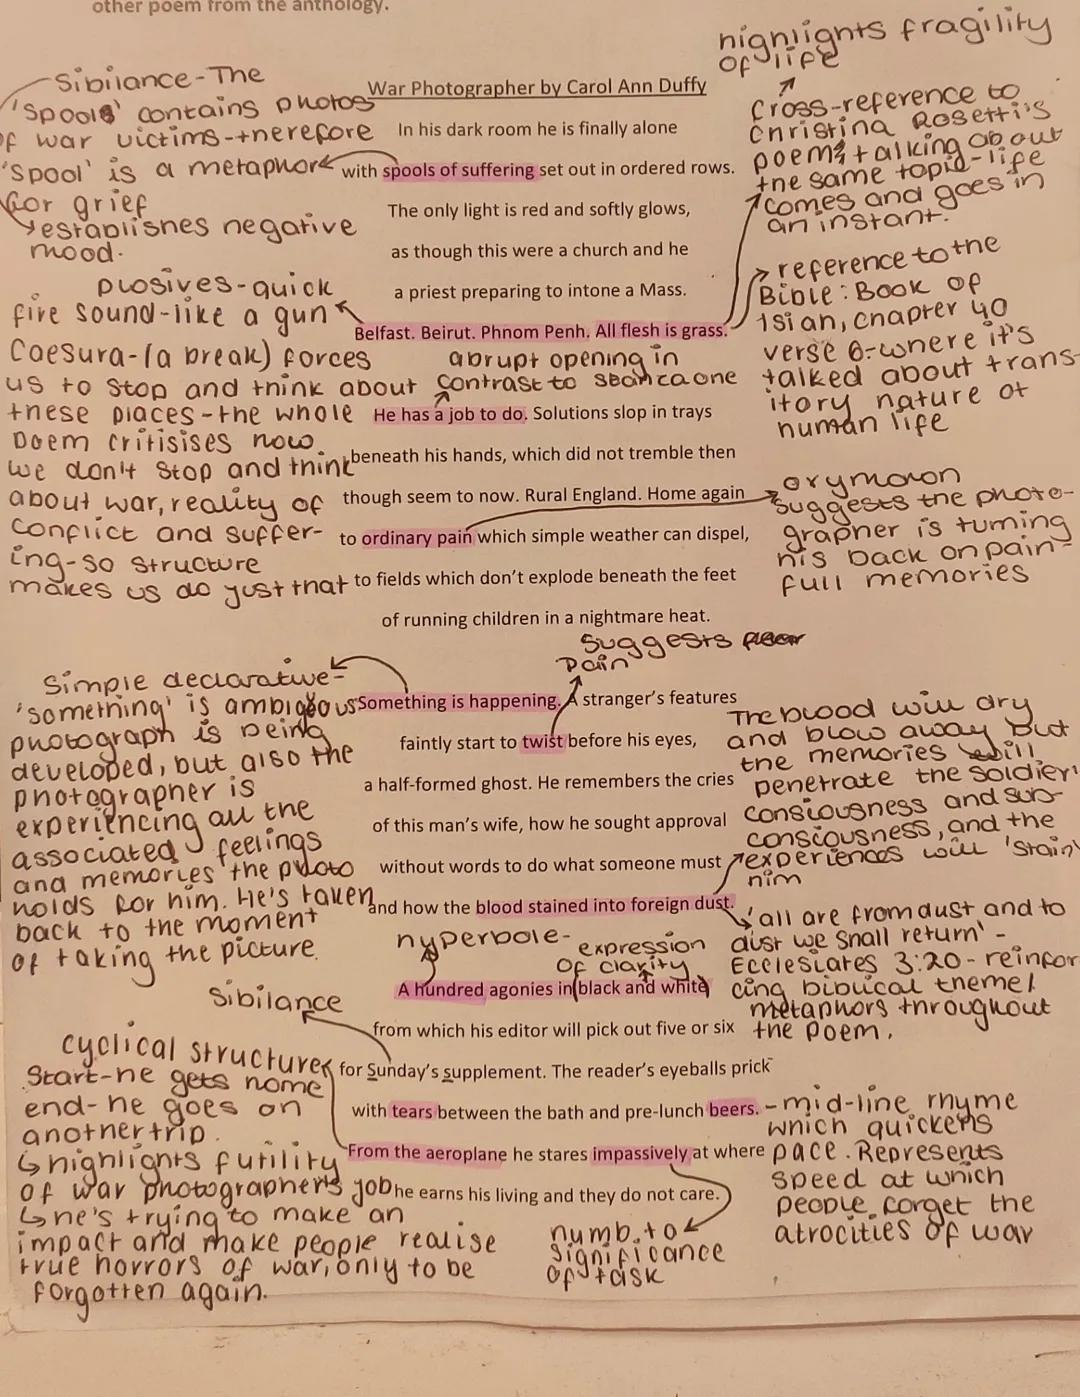 other poem from the anthology.
War Photographer by Carol Ann Duffy
In his dark room he is finally alone
with spools of suffering set out in ordered rows.
The only light is red and softly glows,
as though this were a church and he
a priest preparing to intone a Mass.
Belfast. Beirut. Phnom Penh. All flesh is grass.
He has a job to do. Solutions slop in trays
beneath his hands, which did not tremble then
though seem to now. Rural England. Home again
to ordinary pain which simple weather can dispel,
to fields which don't explode beneath the feet
of running children in a nightmare heat.
Something is happening. A stranger's features
faintly start to twist before his eyes,
a half-formed ghost. He remembers the cries
of this man's wife, how he sought approval
without words to do what someone must
and how the blood stained into foreign dust.
A hundred agonies in black and white
from which his editor will pick out five or six
for Sunday's supplement. The reader's eyeballs prick
with tears between the bath and pre-lunch beers.
From the aeroplane he stares impassively at where
he earns his living and they do not care.
Sibilance-The
'Spools' contains photos
of war victims-therefore
'Spool' is a metaphor
for grief
establishes negative
mood.
plosives-quick
fire sound-like a gun
Caesura-(a break) forces
us to stop and think about
these places-the whole
poem critisises how
we don't stop and think
about war, reality of
conflict and suffer-
ing-so structure
makes us do just that
abrupt opening in
contrast to stanza one
highlights fragility
of life
Cross-reference to
Christina Rosetti's
poem talking about
the same topic-life
comes and goes in
an instant.
reference to the
Bible: Book of
Isian, chapter 40
verse 6-where it's
talked about trans-
itory nature of
human life
oxymoron
suggests the photo-
grapher is turning
his back on pain-
full memories
suggests
pain
Simple declarative-
'something' is ambiguous
photograph is being
developed, but also the
photographer is
experiencing all the
associated feelings
and memories the photo
holds for him. He's taken
back to the moment
of taking the picture.
The blood will dry
and blow away but
the memories will
penetrate the soldier'
consiousness and sub-
consciousness, and the
experiences will 'stain'
him
'all are from dust and to
dust we shall return' -
Ecclesiates 3:20-reinfor
cing biblical theme/
metaphors throughout
the poem.
hyperbole-
expression
of clarity
Sibilance
cyclical structure
Start-he gets home
end-he goes on
another trip.
highlights futility
of war photographer's job
he's trying to make an
impact and make people realise
true horrors of war, only to be
forgotten again.
-mid-line rhyme
which quickens
pace. Represents
speed at which
people forget the
atrocities of war
numb to
significance
of task